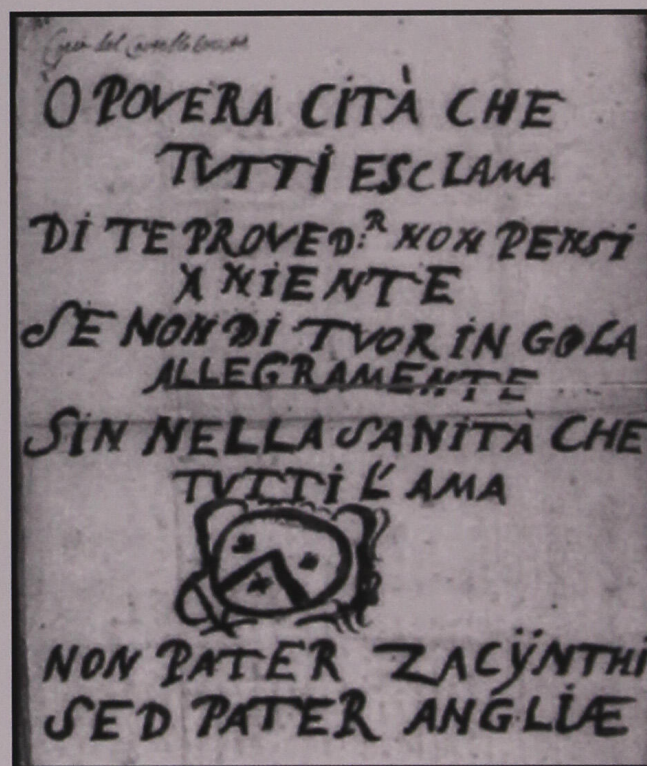 O POVERA CITÀ CHE
TVTTI ESCLAMA
DI TE PROVED:R NON PENSI
A NIENTE
SE NON DI TVOR IN GOLA
ALLEGRAMENTE
SIN NELLA SANITÀ CHE
TVTTI L' AMA
NON PATER ZACŸNTHI
SED PATER ANGLIÆ